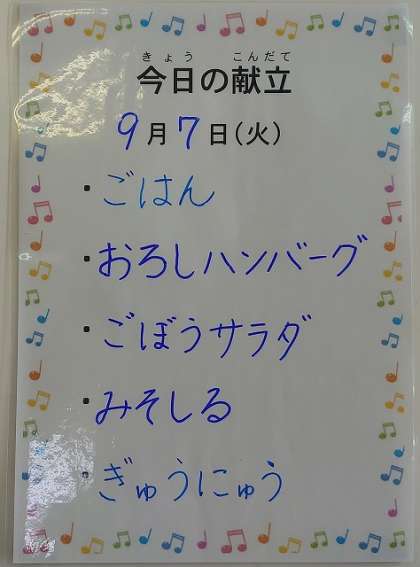 きょう こんだて
今日の献立
9月7日(火)
・ごはん
・おろしハンバーグ
・ごぼうサラダ
・みそしる
・ぎゅうにゅう